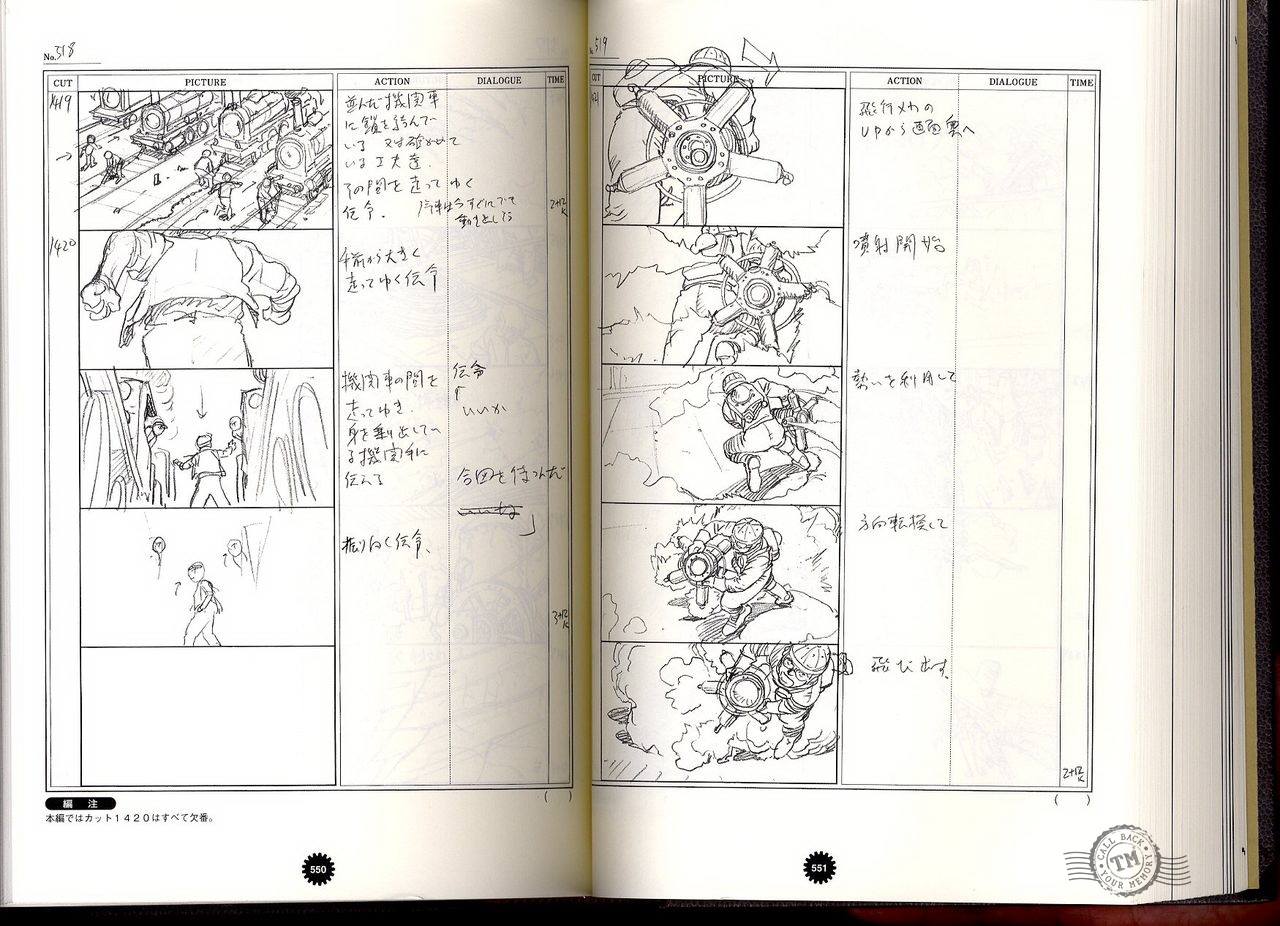 No.518
CUT PICTURE ACTION DIALOGUE TIME
1419
並んだ機関車
に鎖を
いる
いる工夫達.
その間を走ってゆく
伝令.
2+12
K
1420
手前から大きく
走ってゆく伝令
機関車の間を
走ってゆき.
身を乗り出してい
る機関手に
伝える
伝令
「
いいか
合図を待つんだ
」
振り向く伝令、
3+12
K
( )
編 注
本編ではカット1420はすべて欠番。
550
No.519
CUT PICTURE ACTION DIALOGUE TIME
1421
飛行メカの
UPから画面奥へ
噴射開始
勢いを利用して
方向転換して
飛び出す、
2+12
K
( )
551
CALL BACK
TM
YOUR MEMORY